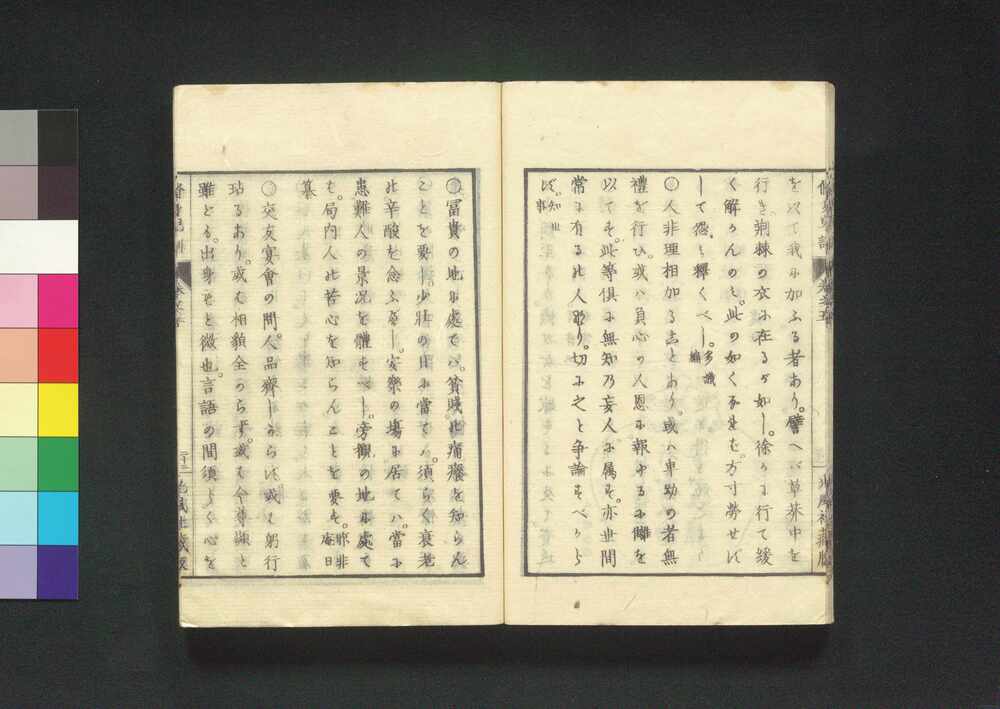 を以て我に加ふる者あり。譬へバ草莽中を
行き。荊棘の衣に在るが如し。徐々に行て緩
く解かんのミ。此の如くなれバ。方寸労せず
して怨も釋くべし。多識編
○人非理相加る事とあり。或ハ卑幼の者無
禮を行ひ。或ハ負心の人恩に報ゆるに讎を
以てそ。此等倶に無知乃妄人に属そ。亦世間
常に有るの人なり。切に之と争論そべから
ず。知世事
○冨貴の地に處てハ。貧賎の痛癢を知らん
ことを要し。少壮の日に當てハ。須らく衰老
の辛酸を念ふべし。安樂の場に居てハ。當に
患難人の景况を體そべし。旁観の地に處て
も。局内人の苦心を知らんことを要そ。昨非庵日
纂
○交友宴會の間。人品齊しからず。或も躬行
玷るあり。或も相貌全からず。或も今尊顕と
雖ども。出身もと微也。言語の間須らく心を